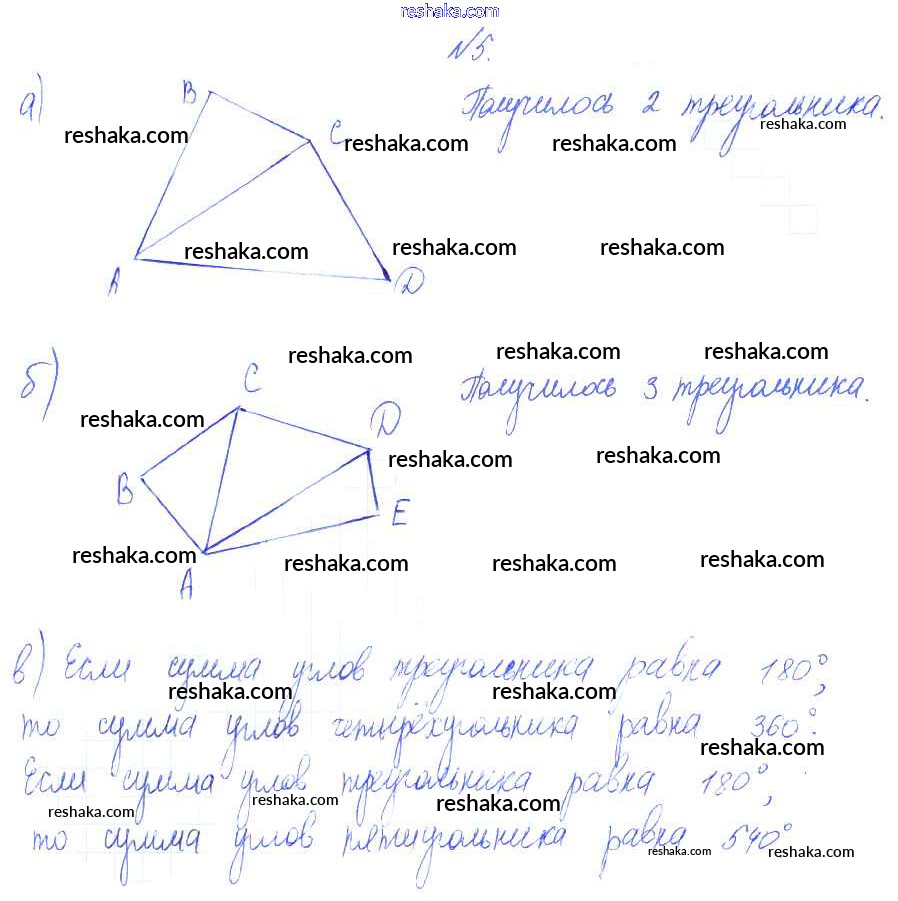 reshaka.com
№5.
а) B Получилось 2 треугольника.
reshaka.com reshaka.com reshaka.com reshaka.com
C
reshaka.com reshaka.com reshaka.com
A D
reshaka.com reshaka.com reshaka.com
б) C Получилось 3 треугольника.
reshaka.com D
reshaka.com reshaka.com
B E
reshaka.com reshaka.com reshaka.com reshaka.com
A
в) Если сумма углов треугольника равна 180°,
reshaka.com reshaka.com
то сумма углов четырёхугольника равна 360°.
reshaka.com
Если сумма углов треугольника равна 180°,
reshaka.com reshaka.com reshaka.com
то сумма углов пятиугольника равна 540°
reshaka.com reshaka.com